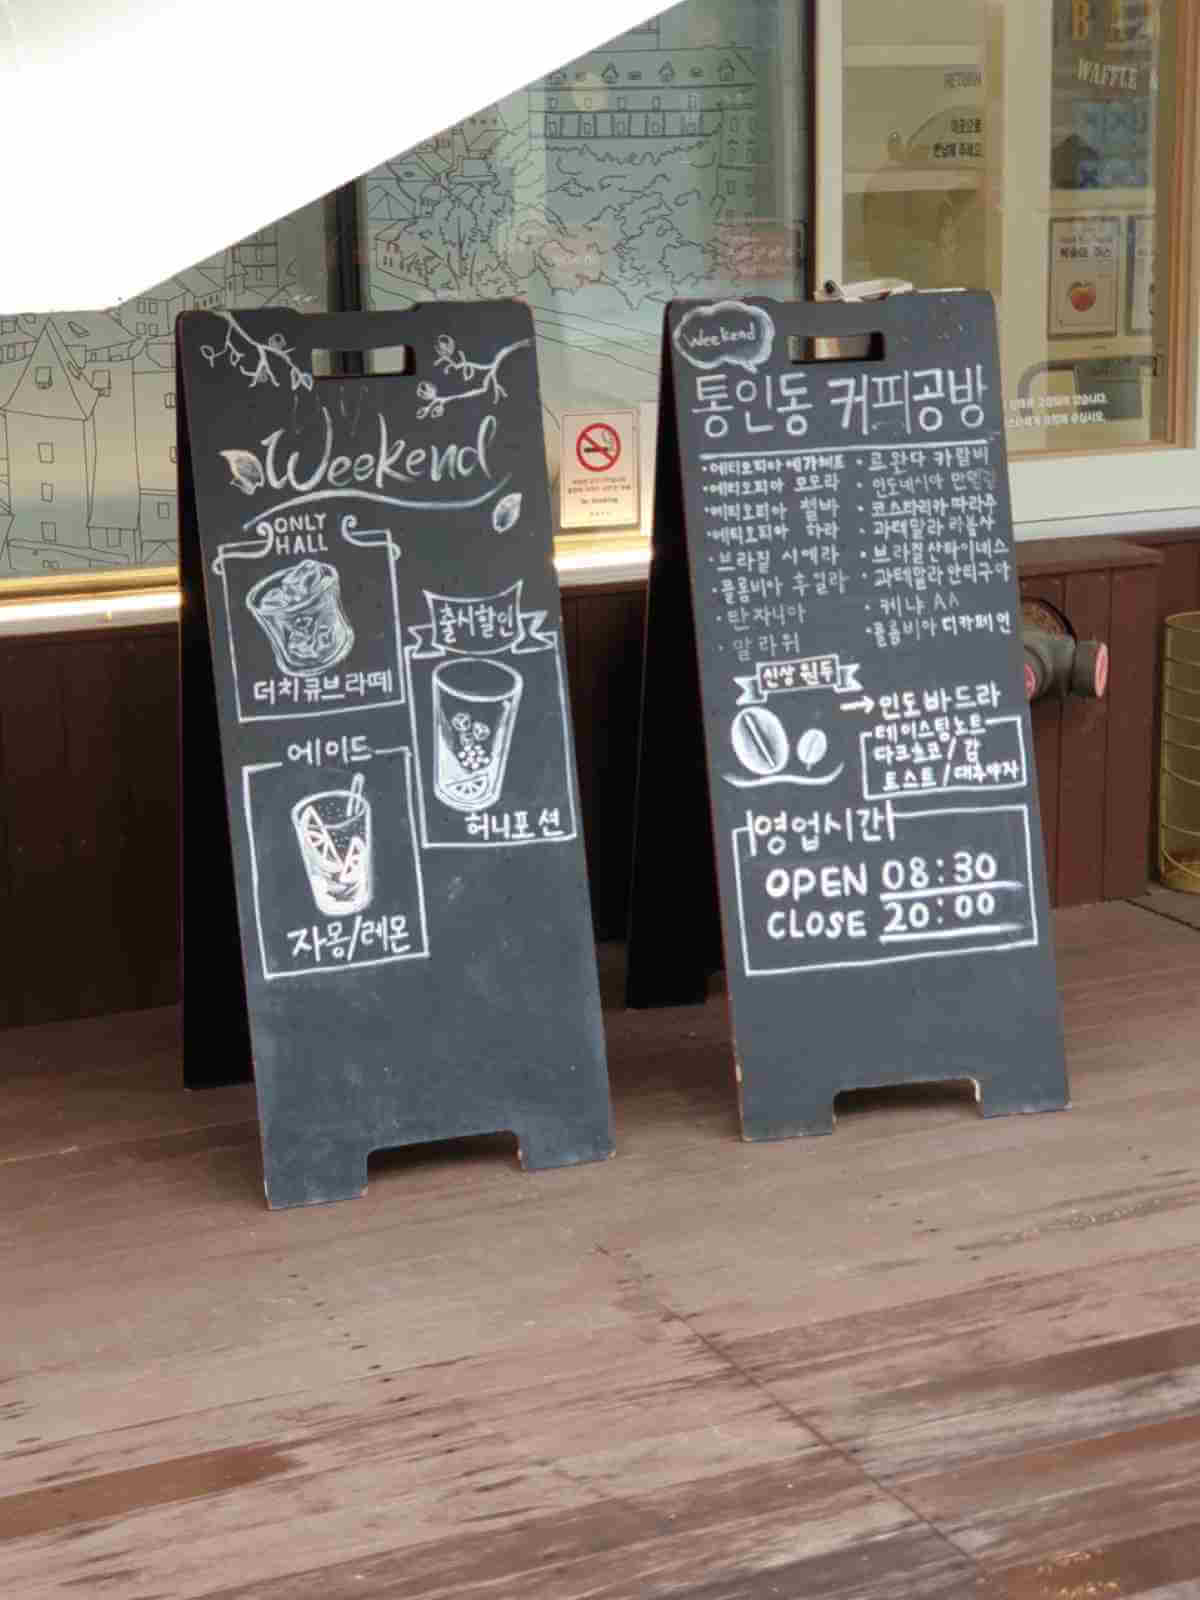 Weekend
ONLY
HALL
더치큐브라떼
출시할인
허니포션
에이드
자몽/레몬
Weekend
통인동 커피공방
·에티오피아 예가체프
·에티오피아 모모라
·에티오피아 첼바
·에티오피아 하라
·브라질 시에라
·콜롬비아 후일라
·탄자니아
·말라위
·르완다 카람비
·인도네시아 만델링
·코스타리카 따라주
·과테말라 라볼사
·브라질산타이네스
·과테말라안티구아
·케냐 AA
·콜롬비아 디카페인
신상 원두
→인도바드라
테이스팅노트
다크초코/감
토스트/대추야자
영업시간
OPEN 08:30
CLOSE 20:00
RETURN
이곳으로
반납해 주세요.
WAFFLE
복숭아 주스
No Smoking